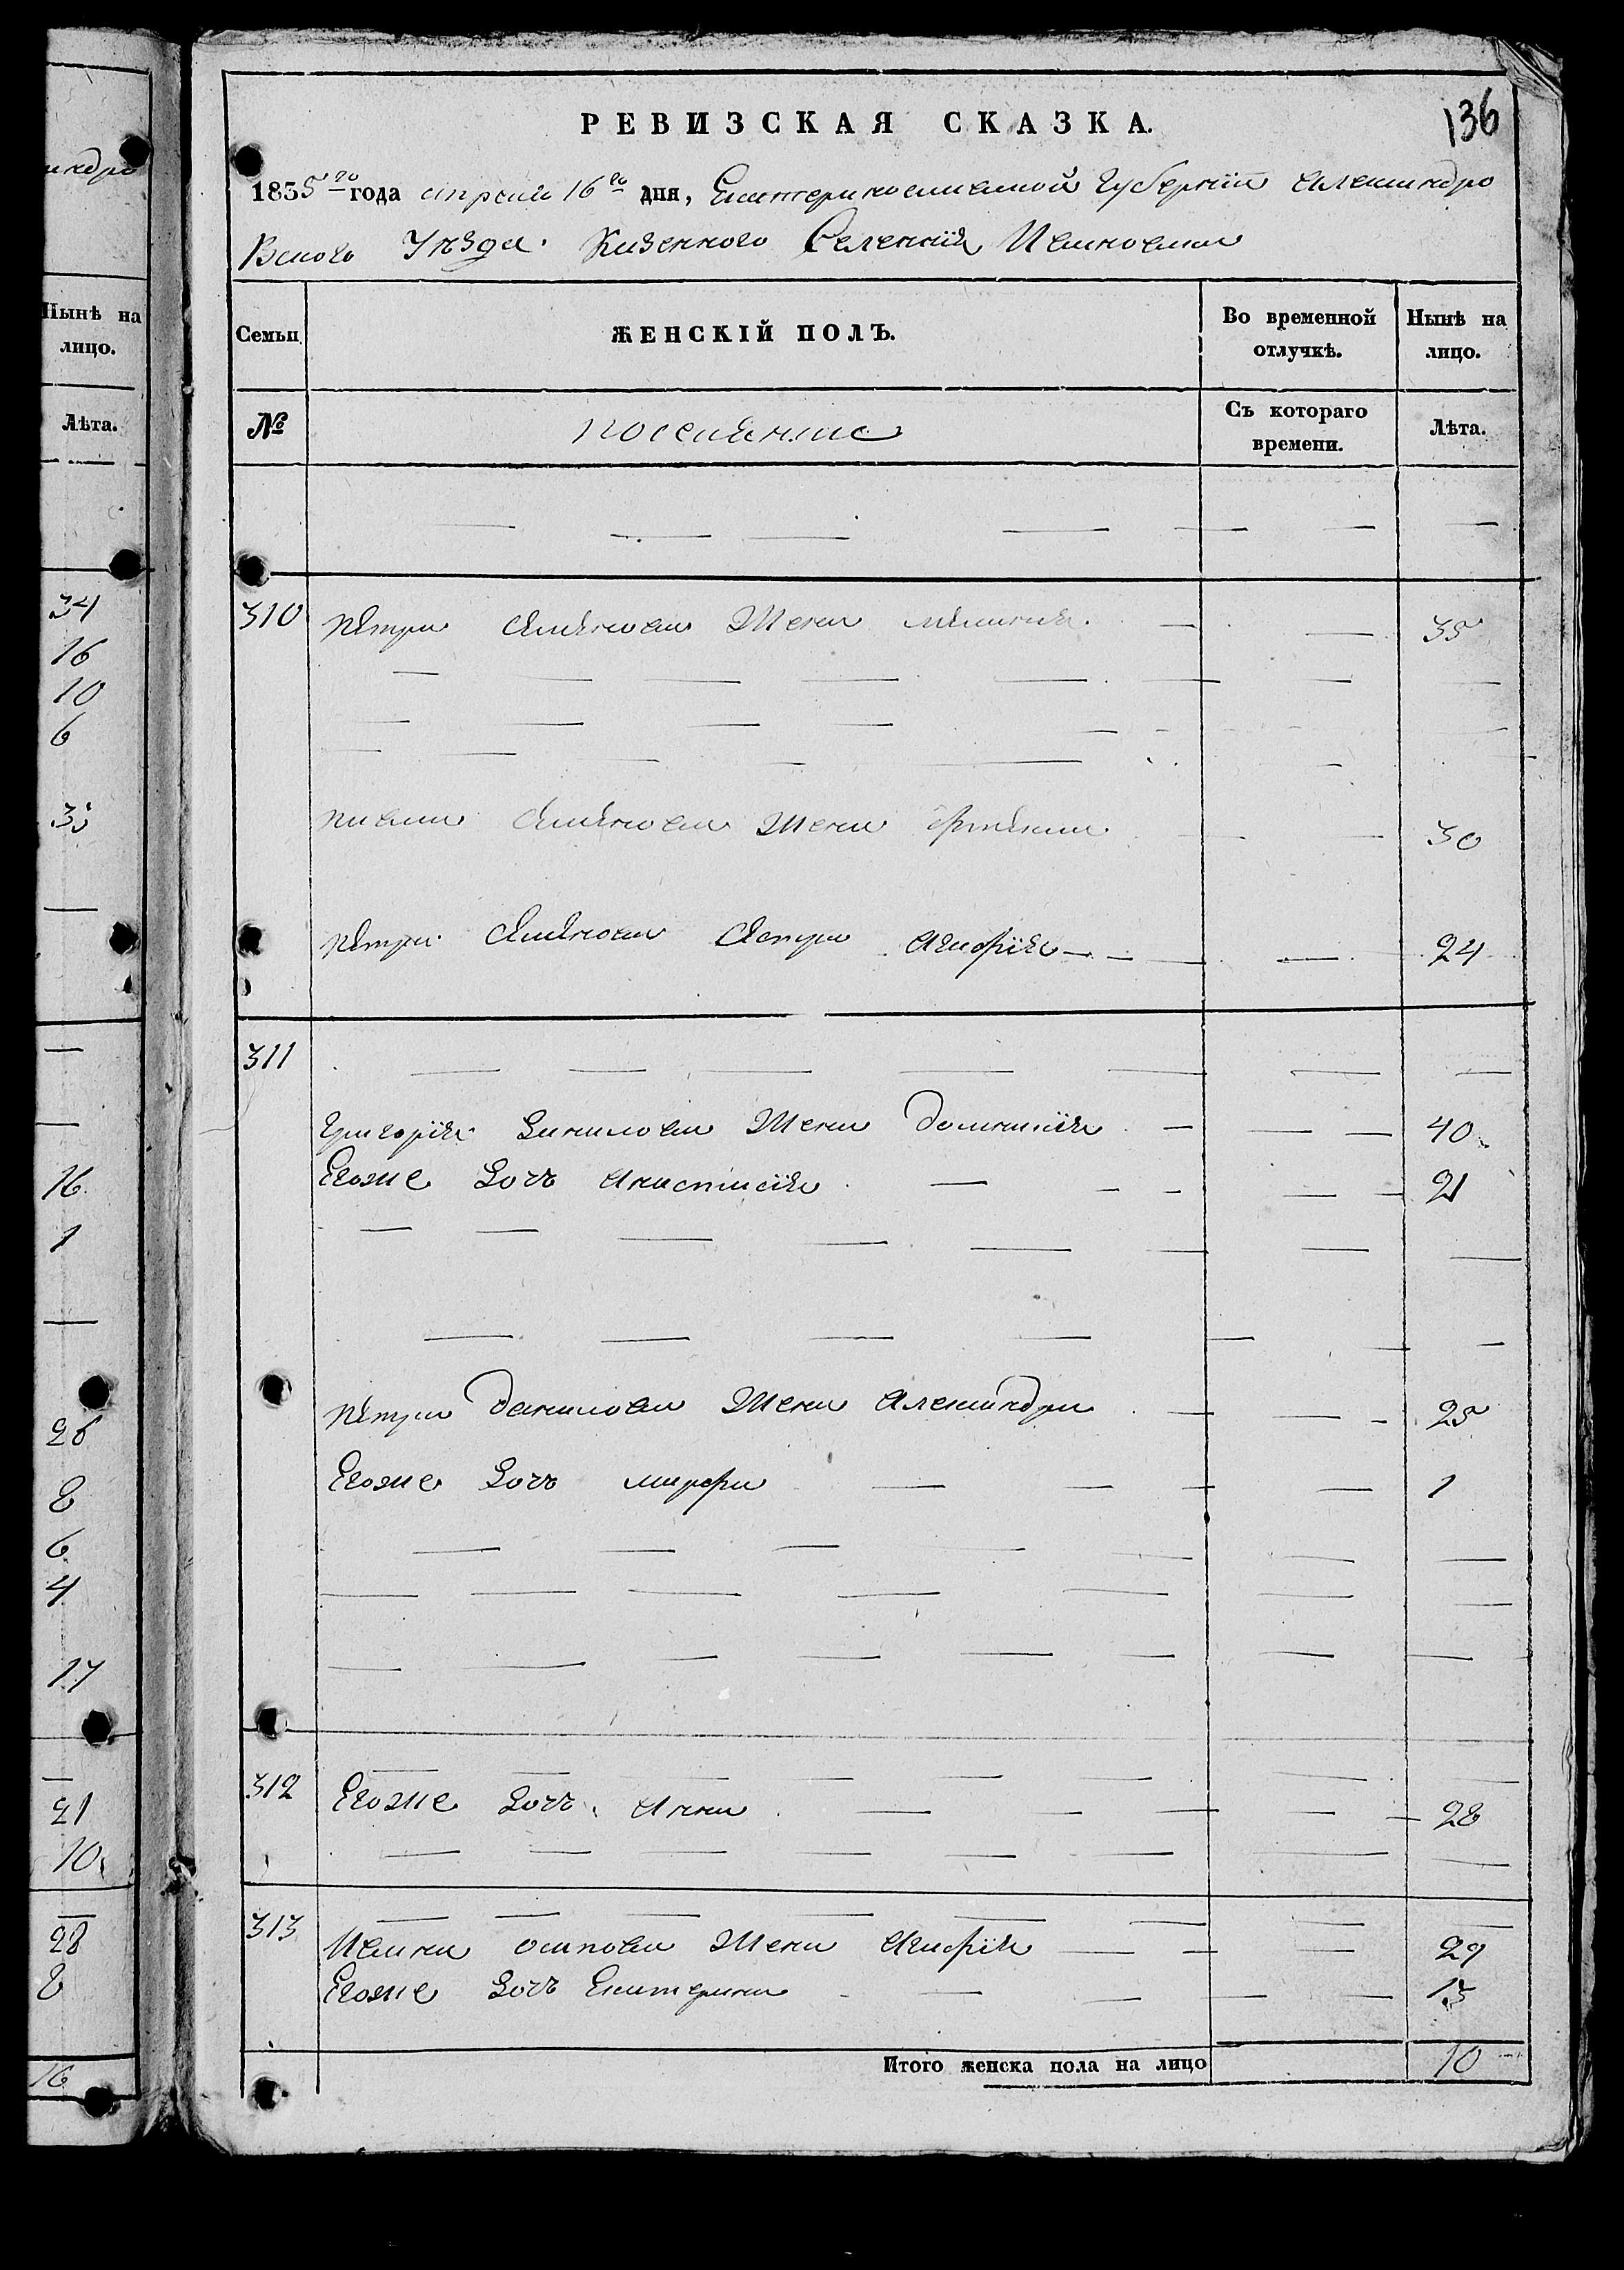 андро
Нынѣ на
лицо.
Лѣта.
34
16
10
6
35
16
1
26
8
6
4
17
21
10
28
8
16
136
РЕВИЗСКАЯ СКАЗКА.
1835го года апреля 16го дня, Екатеринославской Губернии Александро
Вского Уѣзда Казенного Селения Ивановки
Семьи
ЖЕНСКІЙ ПОЛЪ.
Во временной отлучкѣ.
Нынѣ на лицо.
№
поселяние
Съ котораго времени.
Лѣта.
310 Петра Семенова Жена 35
Семенова Жена 30
Петра Семенова Сестра Агафія 24
311
Григорія Данилова Жена Домникія 40
Егоже Дочь Анастасія 21
Петра Данилова Жена Александра 25
Егоже Дочь марфа 1
312 Егоже Дочь Анна 28
313 Ивана осипова Жена Агафія 29
Егоже Дочь Екатерина 13
Итого женска пола на лицо 10